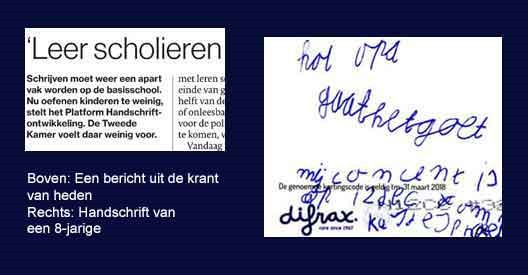 ‘Leer scholieren
Schrijven moet weer een apart
vak worden op de basisschool.
Nu oefenen kinderen te weinig,
stelt het Platform Handschrift-
ontwikkeling. De Tweede
Kamer voelt daar weinig voor.
met leren s
einde van g
helft van de
of onleesba
voor de pol
te komen, v
Vandaag
Boven: Een bericht uit de krant
van heden
Rechts: Handschrift van
een 8-jarige
hoi opa
gaathetgoet
mij is
De genoemde kortingscode is geldig tm 31 maart 2018
difrax.
care since 1967